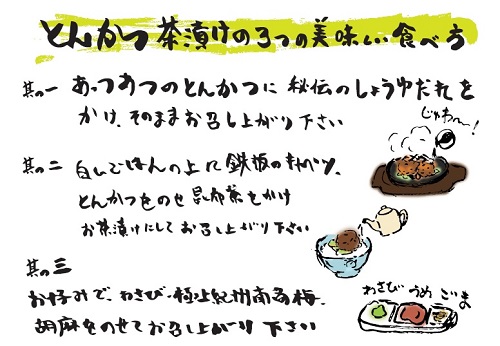 とんかつ茶漬けの3つの美味しい食べ方
其の一 あっつあつのとんかつに秘伝のしょうゆだれを
かけ、そのままお召し上がり下さい
じゅわ〜!
其の二 白いごはんの上に鉄板のキャベツ、
とんかつをのせ昆布茶をかけ
お茶漬けにしてお召し上がり下さい
其の三
お好みで、わさび・極上紀州南高梅、
胡麻をのせてお召し上がり下さい
わさび うめ ごま